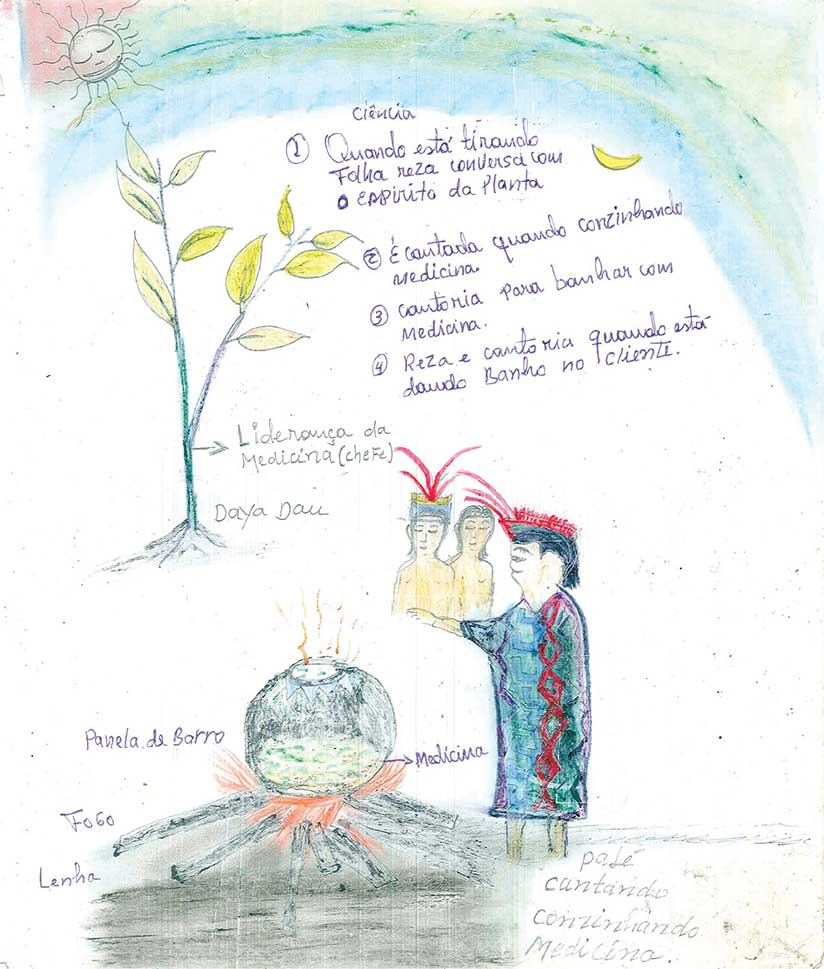 Ciência
① Quando está tirando
Folha reza conversa com
o espirito da Planta
② É cantada quando conzinhando
medicina.
③ cantoria para banhar com
Medicina.
④ Reza e cantoria quando está
dando Banho no cliente.
Liderança da
Medicina (cheFe)
Daya Dau
Panela de Barro
Medicina
FoGo
Lenha
pajé
cantando
conzinhando
Medicina.